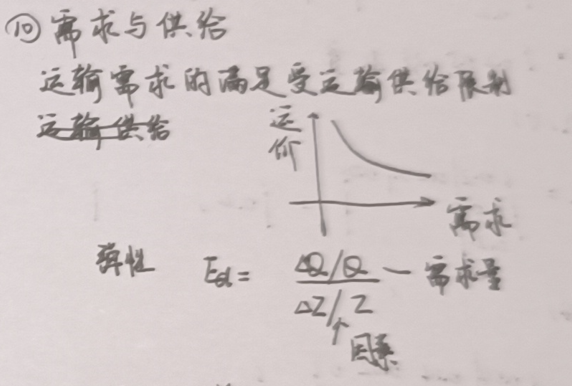 ⑩ 需求与供给
运输需求的满足受运输供给限制
运输供给
运价
需求
弹性 Ed= ΔQ/Q — 需求量
ΔZ/Z
↑因素